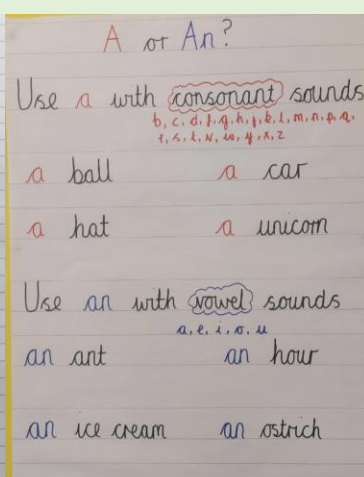 A or An?
Use a with consonant sounds
b, c, d, f, g, h, j, k, l, m, n, p, q,
r, s, t, v, w, y, x, z
a ball a car
a hat a unicorn
Use an with vowel sounds
a, e, i, o, u
an ant an hour
an ice cream an ostrich